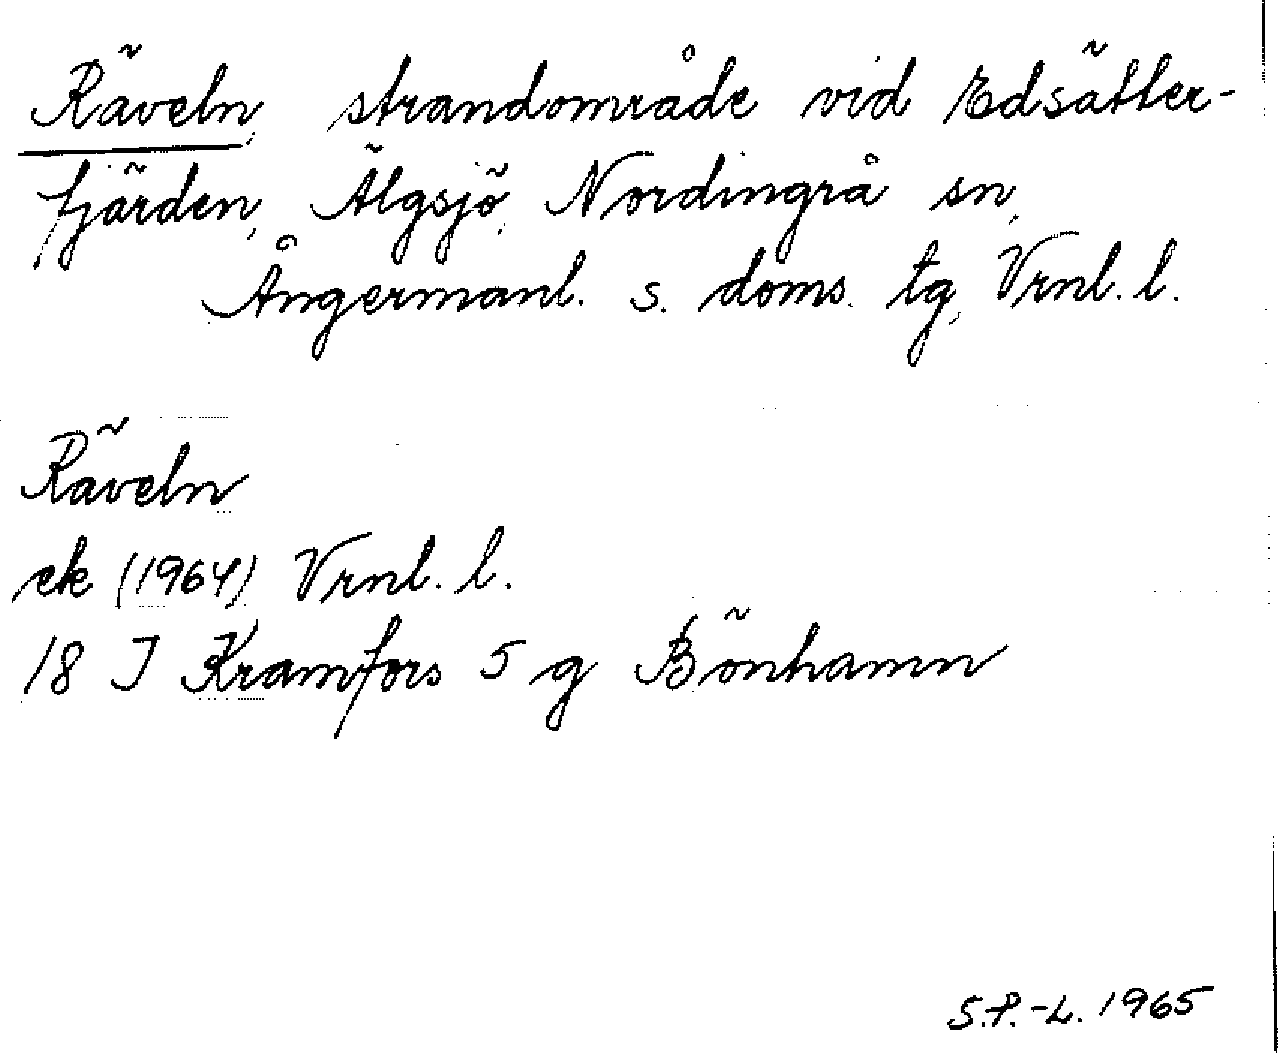 Räveln, strandområde vid Edsätter-
fjärden, Älgsjö, Nordingrå sn,
Ångermanl. s. doms. tg, Vrnl. l.
Räveln
ek (1964) Vrnl. l.
18 J Kramfors 5 g Bönhamn
S.P.-L. 1965